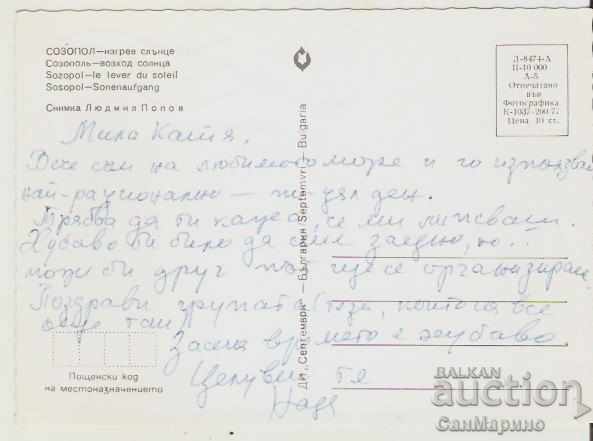 СОЗОПОЛ—изгрев слънце
Созополь—восход солнца
Sozopol—le lever du soleil
Sosopol—Sonenaufgang
Снимка Людмил Попов
Д-8474-А
П-10 000
А-5
Отпечатано
във
Фотографика
К-1037-200/77
Цена 10 ст.
Мила Катя,
Вече съм на любимото море и го използвам
най-рационално — по цял ден.
Трябва да ти кажа, че ми липсваш.
Хубаво би било да сме заедно, но...
може би друг път ще се организираме.
Поздрави групата (тези, които са все
още там)
Засега времето е хубаво
Целувки
Надя
ДИ „Септември" — България Septemvri — Bulgaria
Пощенски код
на местоназначението
BALKAN
auction
СанМарино